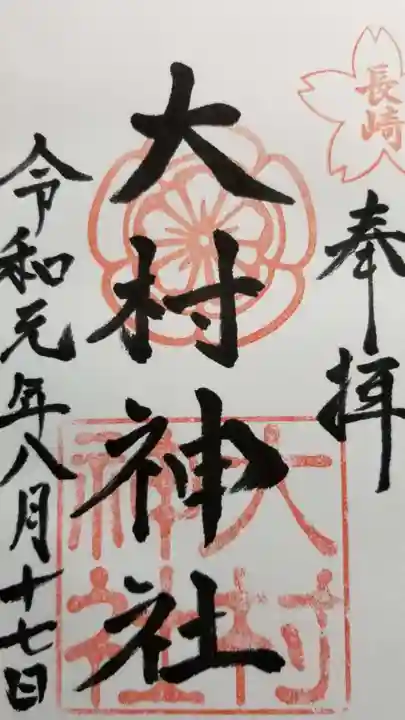 長崎
奉拝
大村神社
大村
神社
令和元年八月十七日